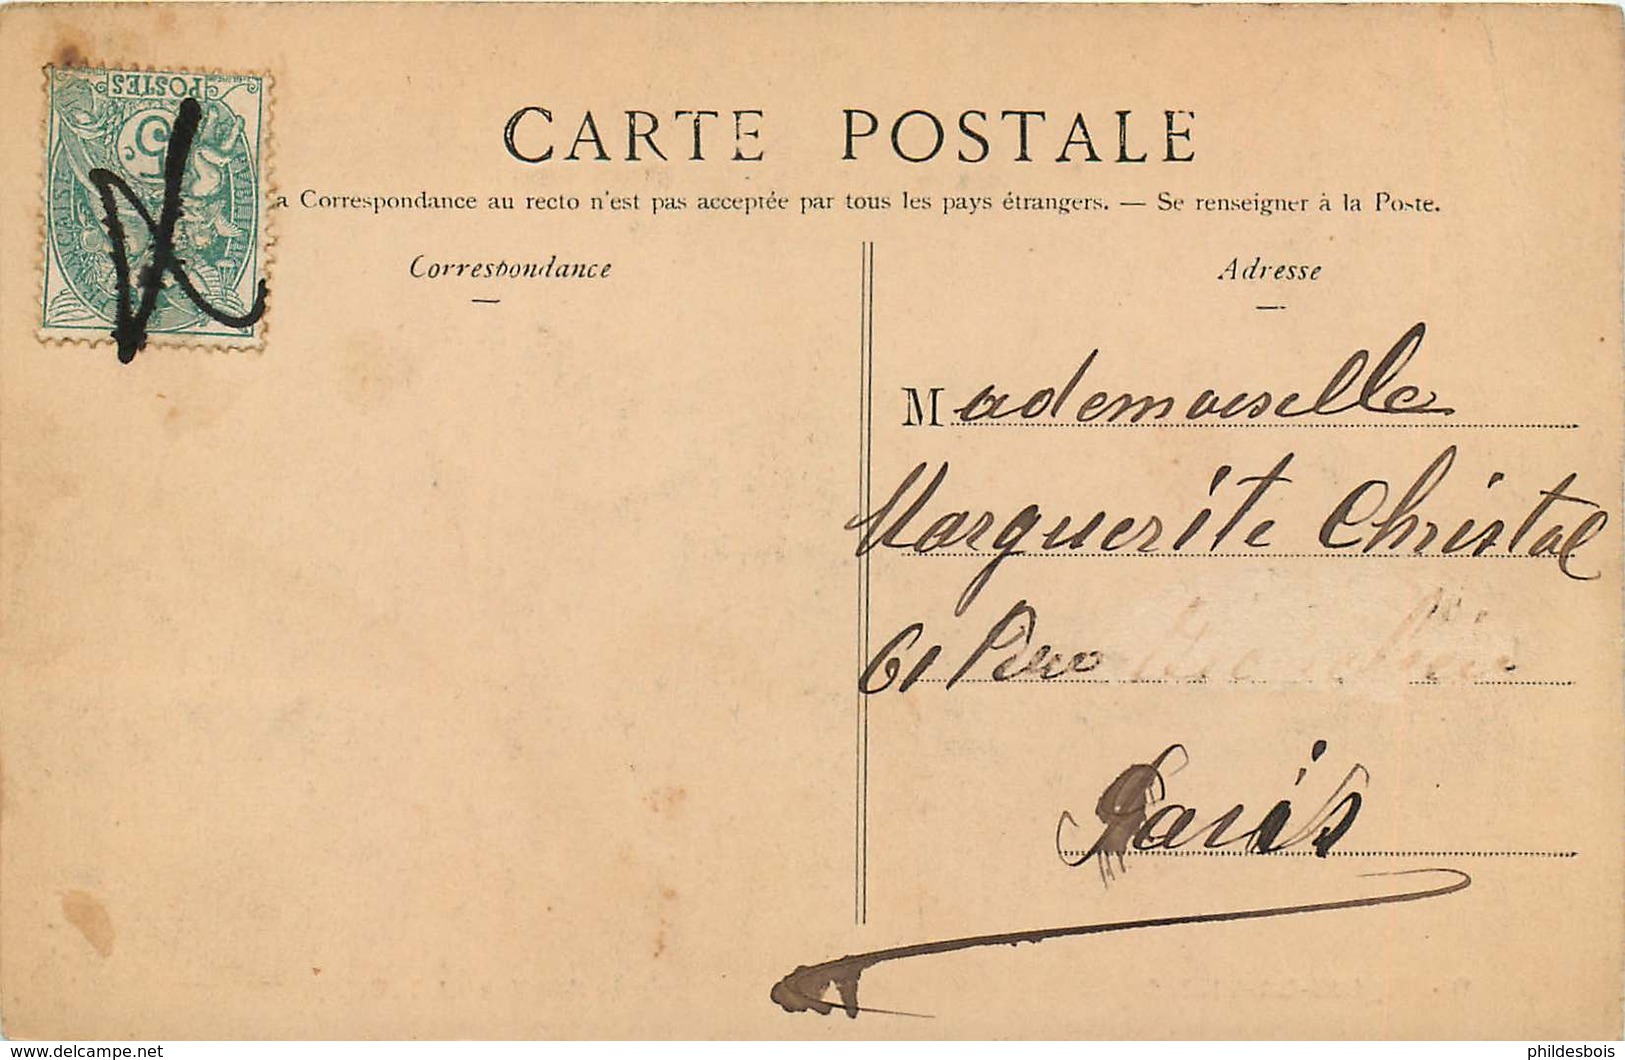 POSTES
5
FRANÇAISE
CARTE POSTALE
a Correspondance au recto n'est pas acceptée par tous les pays étrangers. — Se renseigner à la Poste.
Correspondance
Adresse
Mademoiselle
Marguerite Christal
61 Rue
Paris
phildesbois